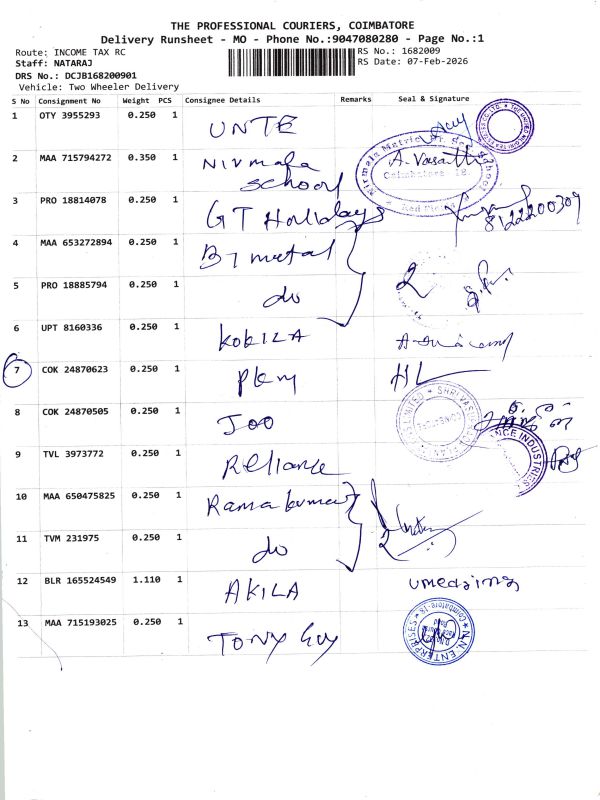 THE PROFESSIONAL COURIERS, COIMBATORE
Delivery Runsheet - MO - Phone No.:9047080280 - Page No.:1
Route: INCOME TAX RC
RS No.: 1682009
Staff: NATARAJ
RS Date: 07-Feb-2026
DRS No.: DCJB168200901
Vehicle: Two Wheeler Delivery
S No Consignment No Weight PCS Consignee Details Remarks Seal & Signature
1 OTY 3955293 0.250 1 UNTE
2 MAA 715794272 0.350 1 Nirmala school A. Vasanthi
Coimbatore - 18
3 PRO 18814078 0.250 1 GT Holidays 8122200309
4 MAA 653272894 0.250 1 BI metal
5 PRO 18885794 0.250 1 do 2
6 UPT 8160336 0.250 1 KOKILA
7 COK 24870623 0.250 1 HL
8 COK 24870505 0.250 1 JOO
9 TVL 3973772 0.250 1 Reliance
10 MAA 650475825 0.250 1 Ramakumar
11 TVM 231975 0.250 1 do
12 BLR 165524549 1.110 1 AKILA
13 MAA 715193025 0.250 1 TONY GUY
N.N. ENTERPRISES
Coimbatore-18